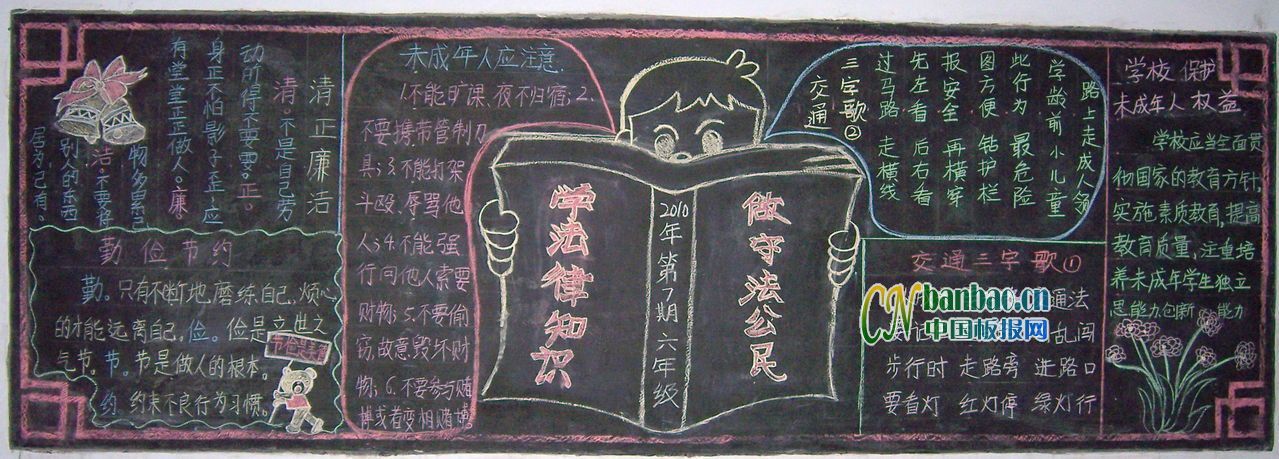 清正廉洁
清。不是自己劳
动所得不要要。正。
身正不怕影子歪。应
有堂堂正正做人。廉
物多累己
洁。不要将
别人的东西
居为己有。
勤俭节约
勤。只有不断地磨练自己。烦心
的才能远离自己。俭。俭是立世之
气节。节。节是做人的根本。
约。约束不良行为习惯。
未成年人应注意
1.不能旷课、夜不归宿；2.
不要携带管制刀
具；3.不能打架
斗殴、辱骂他
人；4.不能强
行向他人索要
财物；5.不要偷
窃、故意毁坏财
物；6.不要参与赌
博或者变相赌博
学法律知识
2010年第7期六年级
做守法公民
交通
三字歌②
过马路 走横线
先左看 后右看
报安全 再横穿
图方便 钻护栏
此行为 最危险
学龄前 小儿童
路上走 成人领
交通三字歌①
通法
乱闯
步行时 走路旁 进路口
要看灯 红灯停 绿灯行
学校保护
未成年人权益
学校应当全面贯
彻国家的教育方针，
实施素质教育，提高
教育质量，注重培
养未成年学生独立
思能力创新 能力
CN banbao.cn
中国板报网